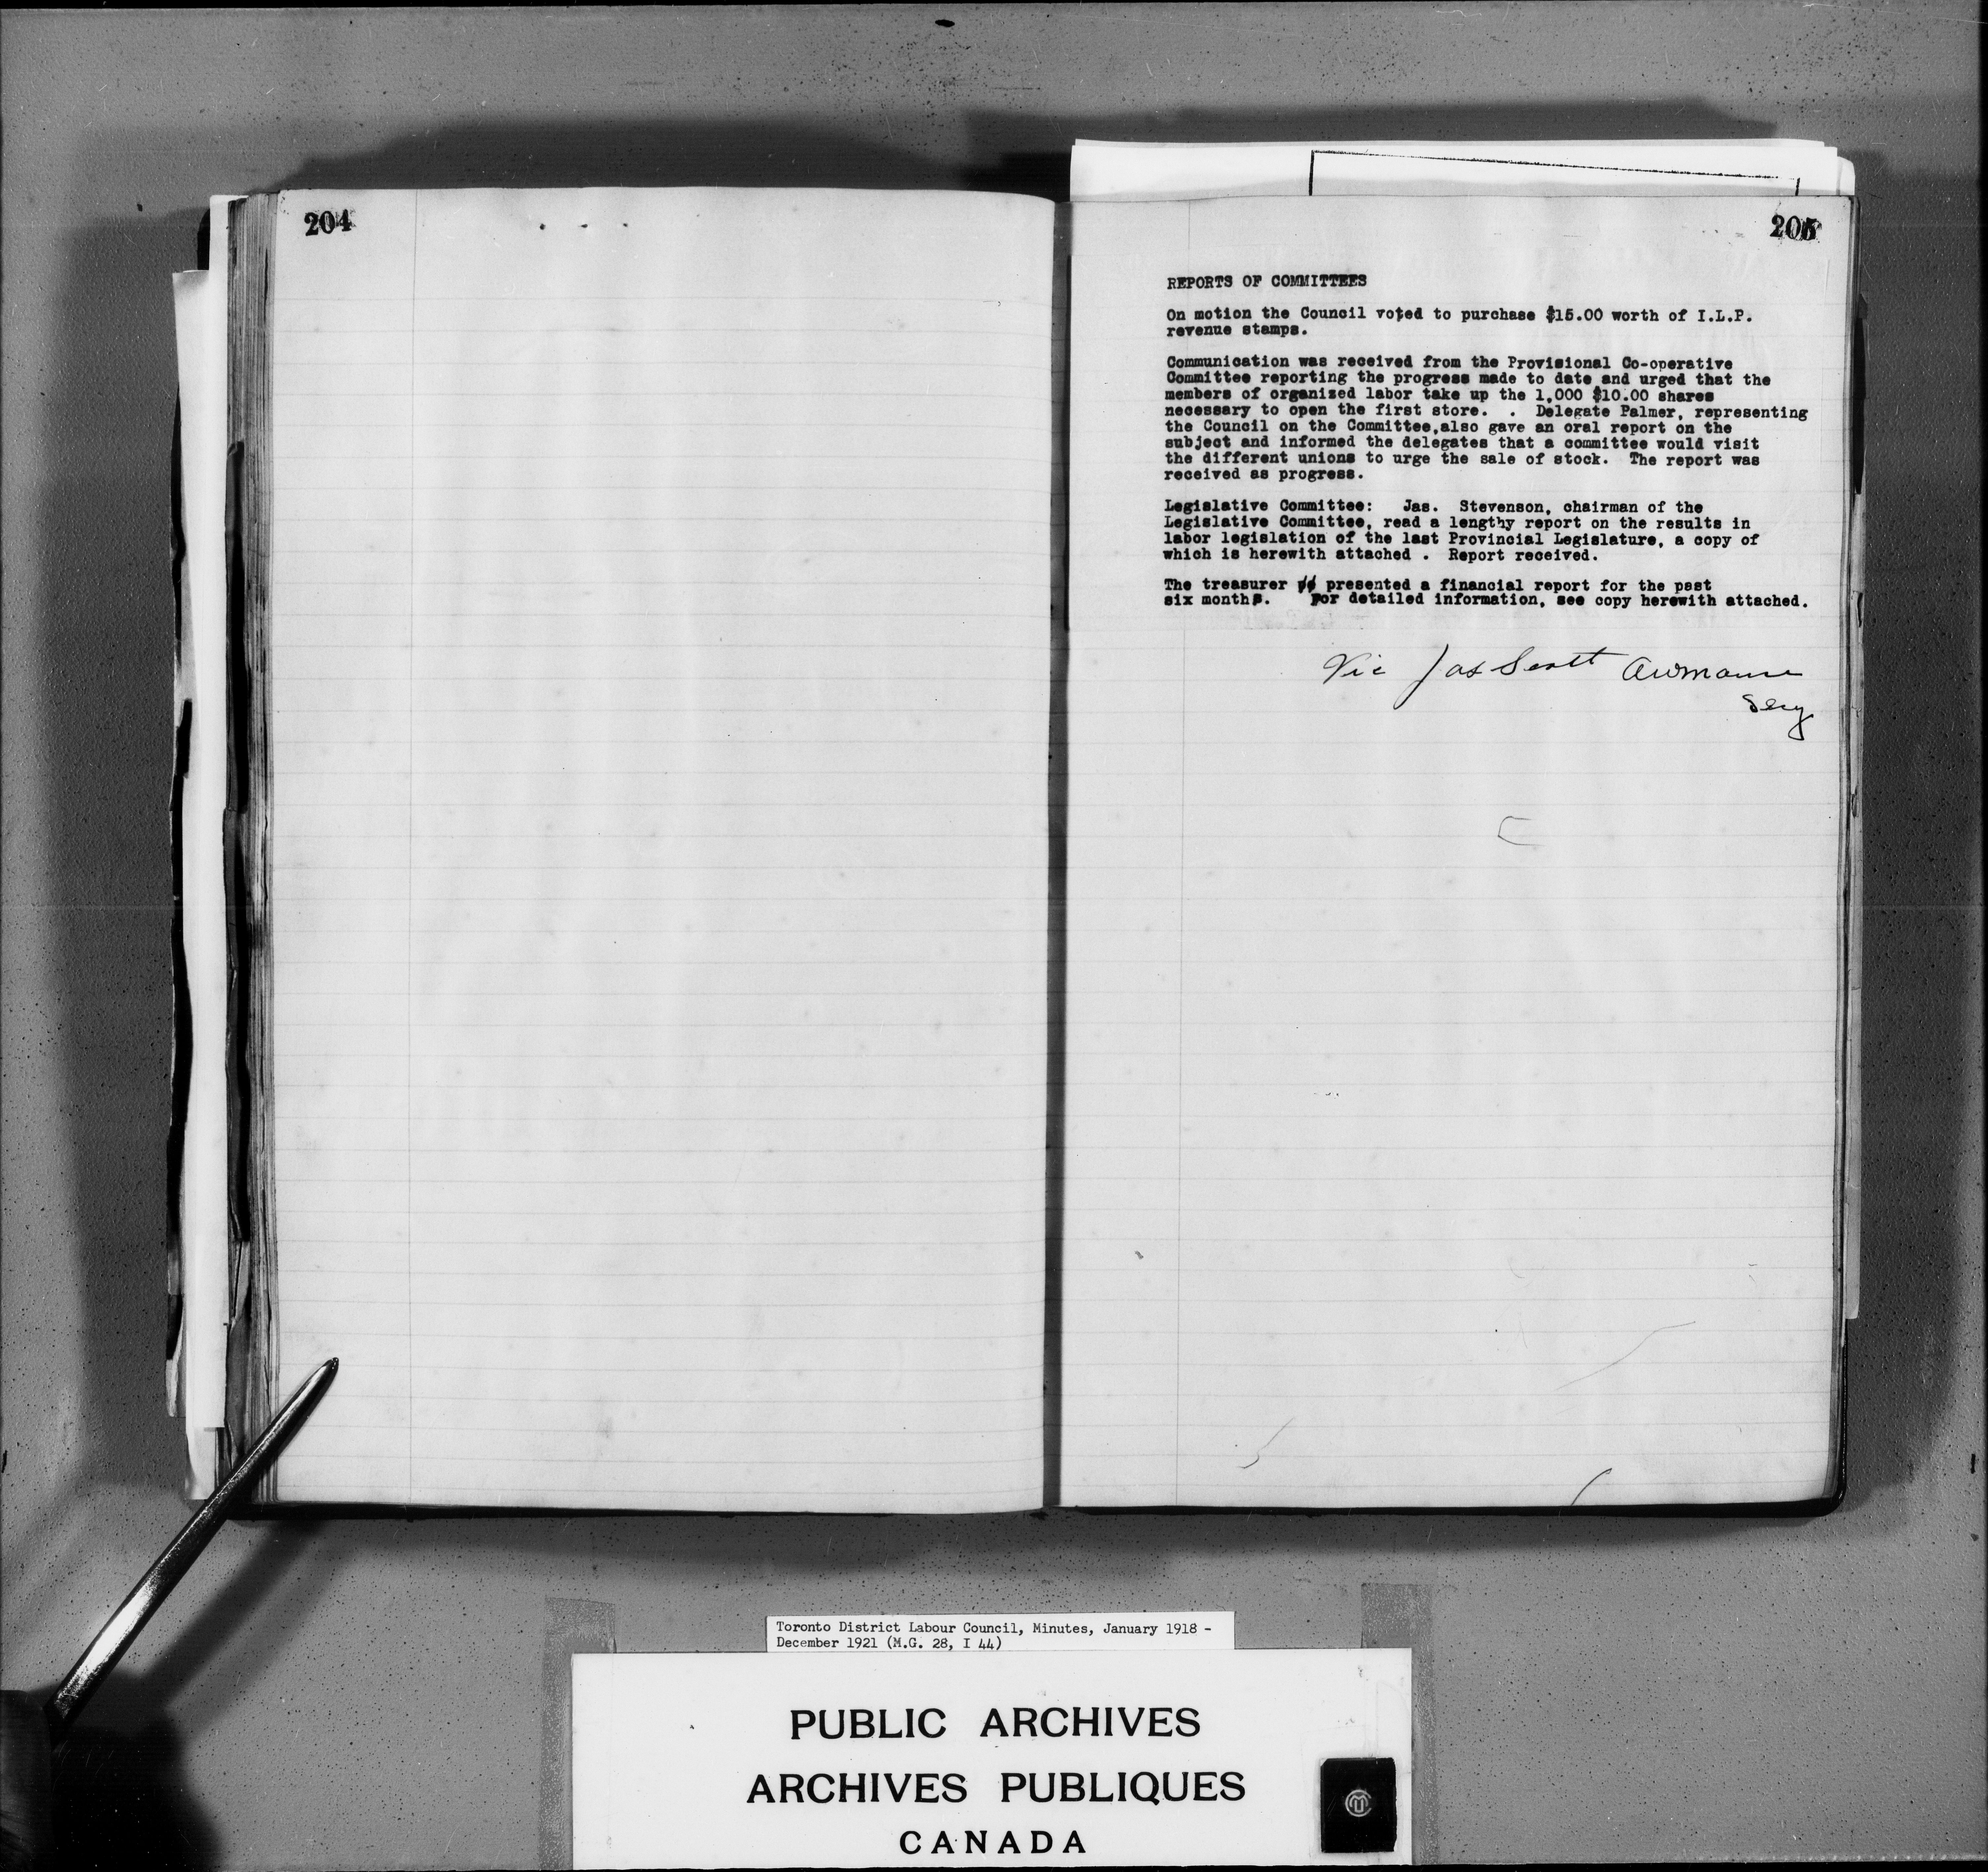 204
205
REPORTS OF COMMITTEES
On motion the Council voted to purchase $15.00 worth of I.L.P.
revenue stamps.
Communication was received from the Provisional Co-operative
Committee reporting the progress made to date and urged that the
members of organized labor take up the 1,000 $10.00 shares
necessary to open the first store. . Delegate Palmer, representing
the Council on the Committee,also gave an oral report on the
subject and informed the delegates that a committee would visit
the different unions to urge the sale of stock. The report was
received as progress.
Legislative Committee: Jas. Stevenson, chairman of the
Legislative Committee, read a lengthy report on the results in
labor legislation of the last Provincial Legislature, a copy of
which is herewith attached . Report received.
The treasurer presented a financial report for the past
six months. For detailed information, see copy herewith attached.
Vic Jas Scott
Secy
Toronto District Labour Council, Minutes, January 1918 -
December 1921 (M.G. 28, I 44)
PUBLIC ARCHIVES
ARCHIVES PUBLIQUES
CANADA